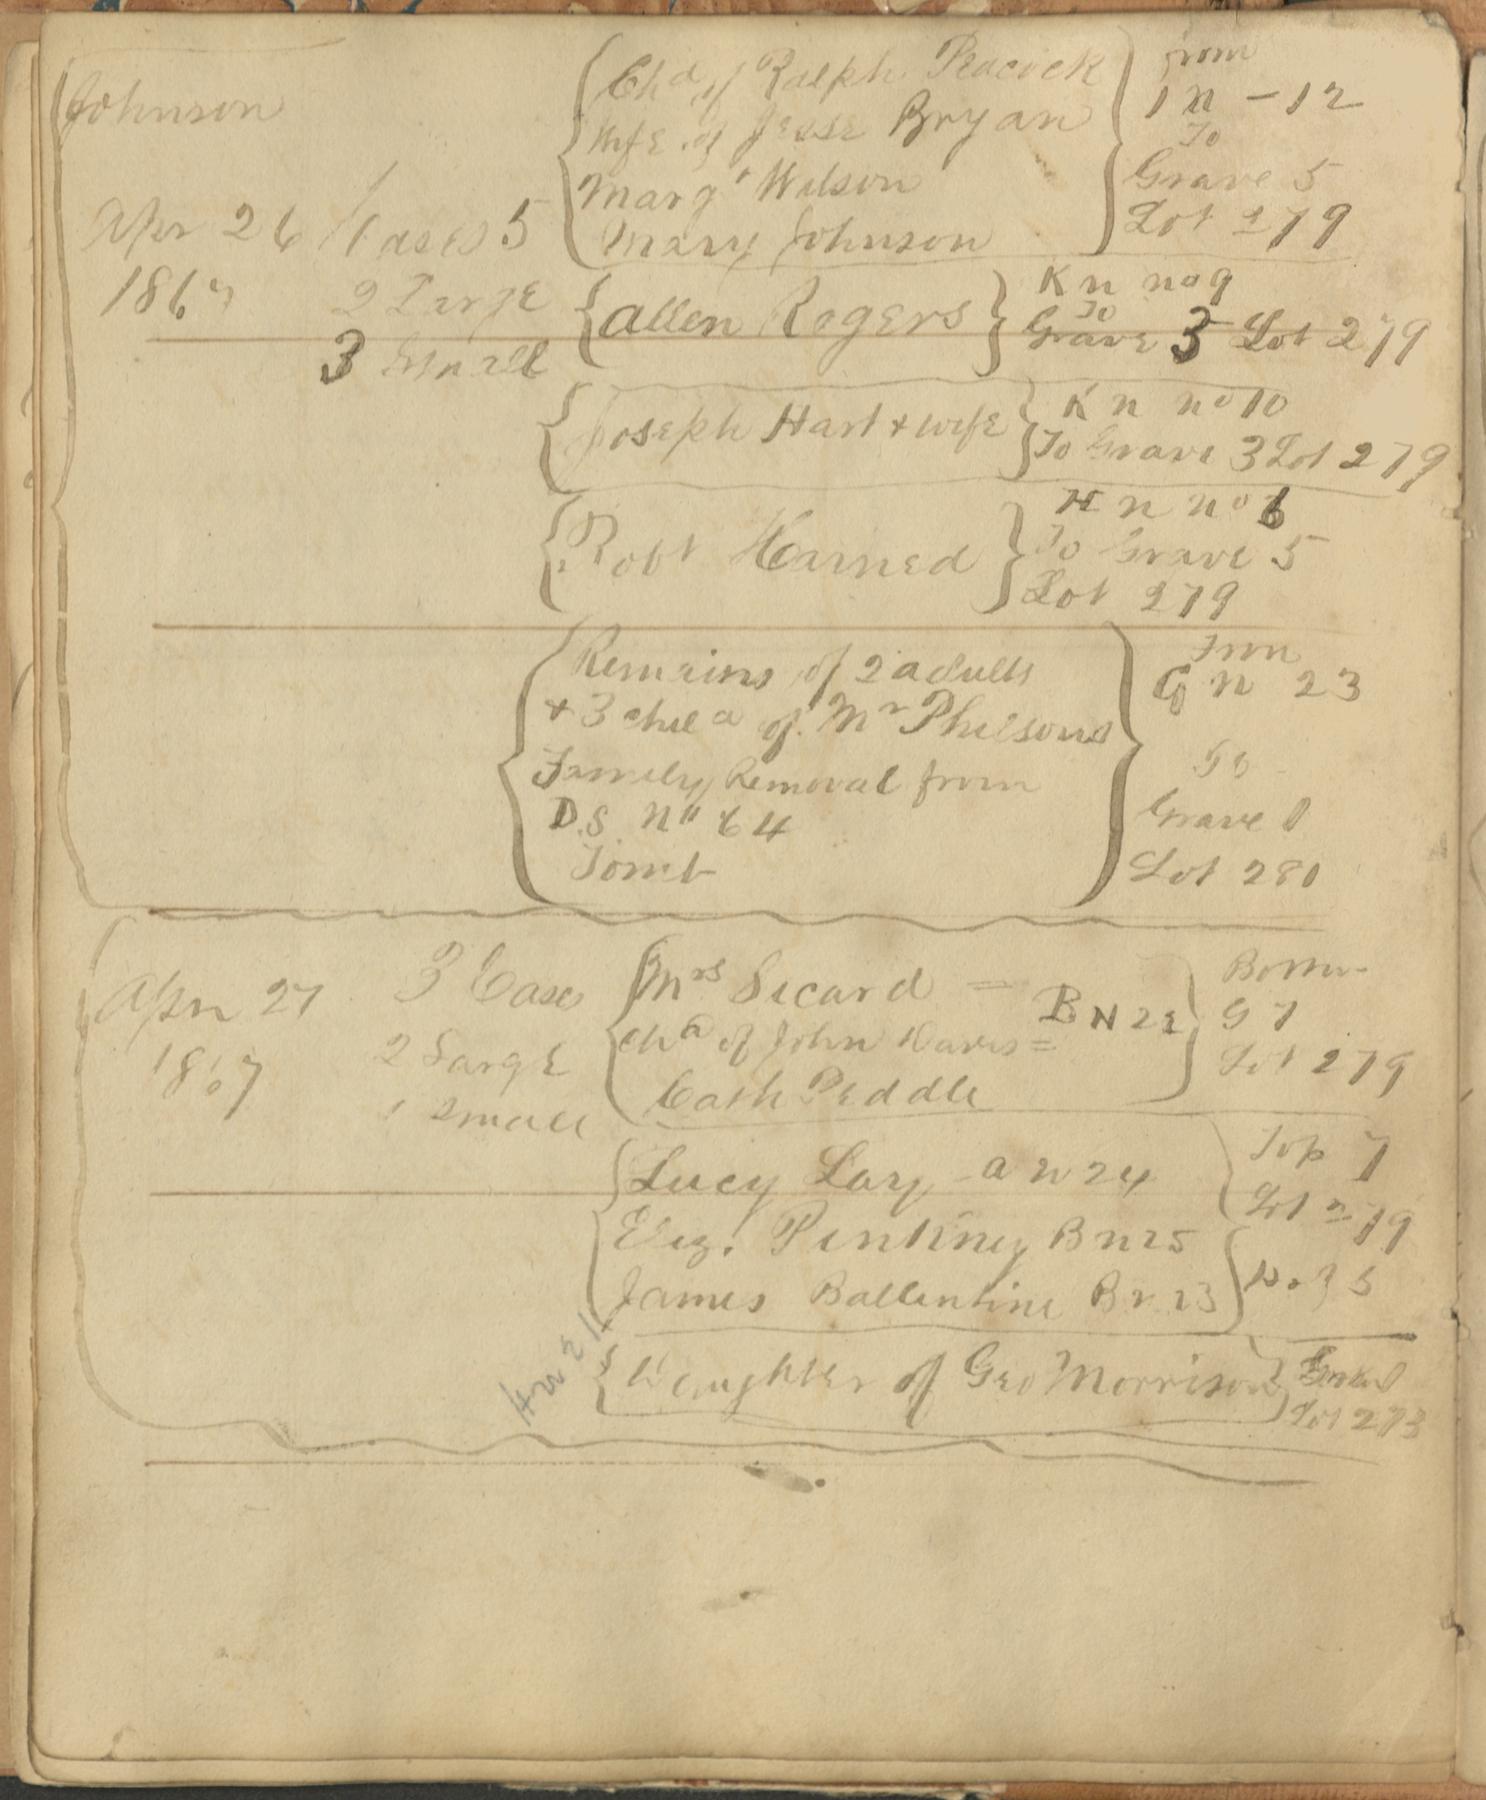 Johnson
Chd of Ralph Peacock
Wife of Jesse Bryan
Margt Wilson
Mary Johnson
from
1 N - 12
To
Grave 5
Lot 279
Apr 26
1867
Cases 5
2 Large
3 Small
Allen Rogers
K n no 9
To
Grave 3 Lot 279
Joseph Hart + wife
K n no 10
To Grave 3 Lot 279
Robt Harned
H n no 6
To Grave 5
Lot 279
Remains of 2 adults
+ 3 chil d of Mr Philsons
Family Removal from
D.S No 64
Tomb
From
G n 23
To
Grave 1
Lot 280
Apr 27
1867
3 Cases
2 Large
1 Small
Mrs Sicard = B N 22
Chd of John Davis =
Cath Peddle
Bottom
G 7
Lot 279
Lucy Lary - a n 24
Top 7
Lot 279
Eliz. Pinkney B n 25
James Ballentine B n 23
No. 3 5
Hn 21
Daughter of Geo Morrison
Grave 1
Lot 273